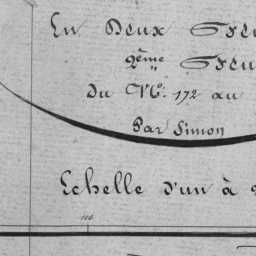 En Deux
2ème
Du N°. 172 au
Par Simon
Echelle d'un à
100